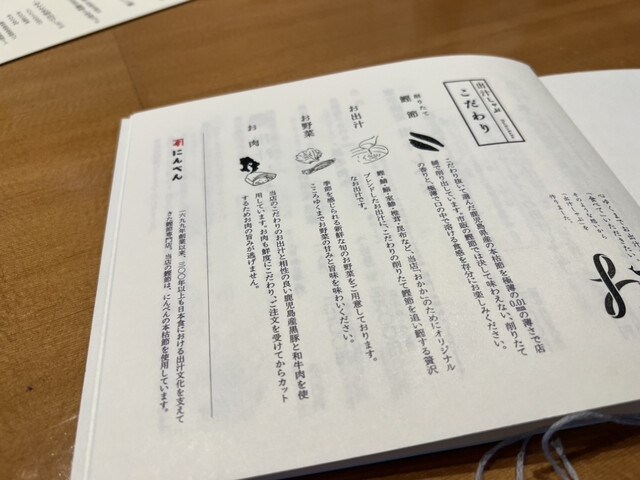 出汁しゃぶ
こだわり
削りたて
鰹節
こだわり抜いて選んだ鹿児島県産の本枯節を極薄の0.01㎜の薄さで店
舗で削り出しています。市販の鰹節では決して味わえない、削りたて
の香りと、極薄で口の中で溶ける食感を存分にお楽しみください。
お出汁
鰹・鯖・鰯・宗田鰹・椎茸・昆布など、当店「おかか」のためにオリジナル
ブレンドしたお出汁にこだわりの削りたて鰹節を追い鰹する贅沢
なお出汁です。
お野菜
季節を感じられる新鮮な旬のお野菜をご用意しております。
こころゆくまでお野菜の甘みと旨味を味わいください。
お肉
当店のこだわりのお出汁と相性の良い鹿児島産黒豚と和牛肉を使
用しています。お肉も鮮度にこだわり、ご注文を受けてからカット
するためお肉の旨みが逃げません。
にんべん
一六九九年創業以来、三〇〇年以上も日本食における出汁文化を支えて
きた鰹節専門店。当店の鰹節は、にんべんの本枯節を使用しています。